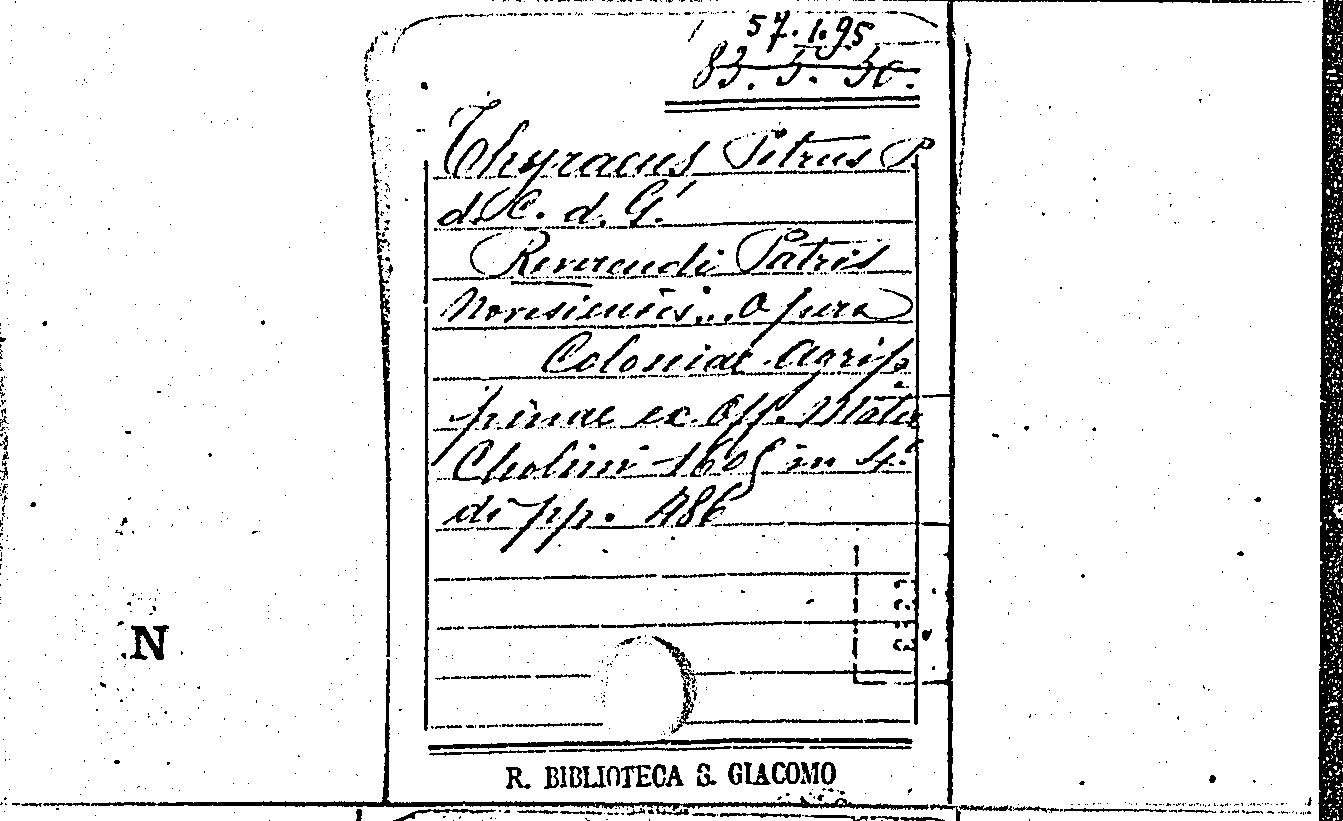 57.1.95
83. 5. 30.
Thyraeus Petrus P.
d. C. d. G.
Reverendi Patris
Novesiensis... Opera
Coloniae Agrip
pinae ex Off. Mater
Cholini 1605 in 4.º
di pp. 486
N
R. BIBLIOTECA S. GIACOMO